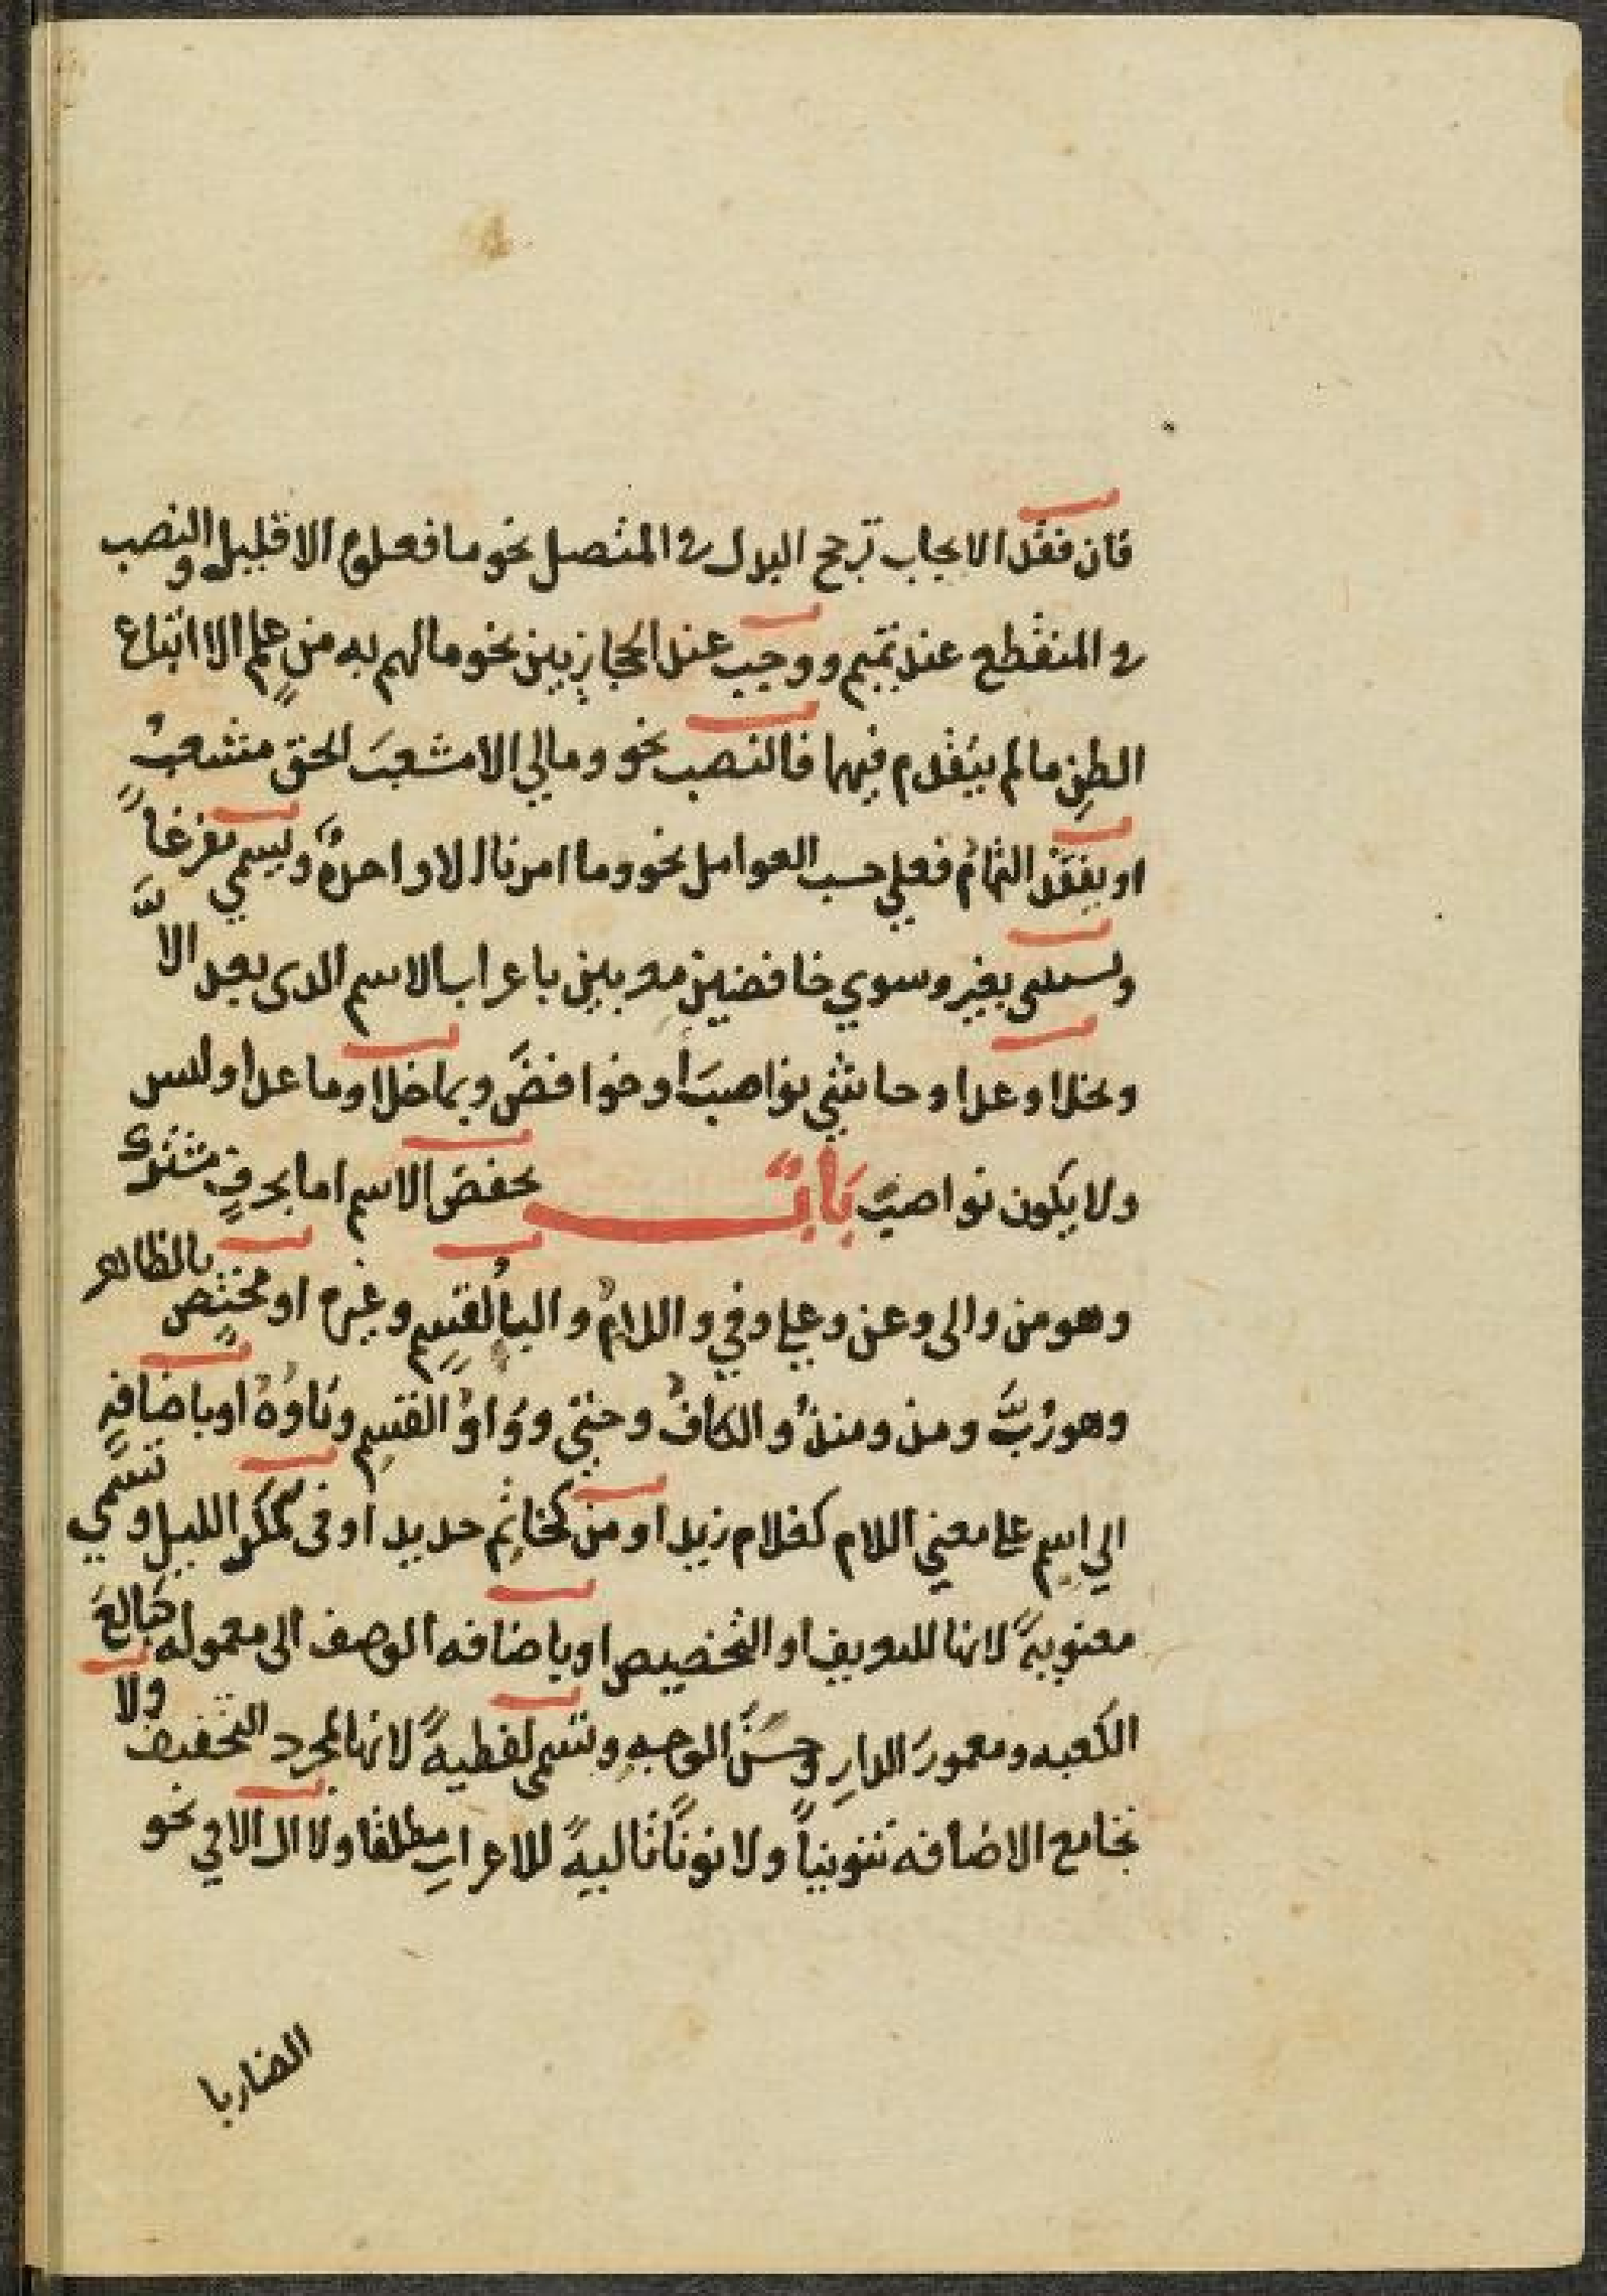 فان فقد الايجاب ترجح البدل في المتصل نحو ما فعلوه الا قليل والنصب
في المنقطع عند تميم ووجب عند الحجازيين نحو ما لهم به من علمٍ الا اتباع
الظنِ ما لم يتقدم فيهما فالنصب نحو وما لي الا مشعبَ الحق مشعبٌ
او يفقد التمامُ فعلي حسب العوامل نحو وما امرنا الا واحدةٌ ويسمي مفرغاً
ويستثنى بغير وسوي خافضين معربين باعراب الاسم الدى بعد الاَّ
وبخلا وعدا وحاشي نواصبَ او خوافضَ وبما خلا وما عدا وليس
ولا يكون نواصبَ بَابٌ يخفض الاسم اما بحرفٍ مشتركٍ
وهو من والى وعن وعلى وفي واللامُ والباُ للقسمِ وغيره او مختصٍ بالظاهر
وهو رُبَّ ومذ ومنذُ والكافُ وحتى ووَاوُ القسمِ وتاوُهُ او باضافةٍ
الي اسمٍ علي معني اللام كغلام زيد او من كخاتم حديد او فى كمكر الليل وتسَّمي
معنويةً لانها للتعريف او التخصيص او باضافه الوصف الى معموله كبالغَ
الكعبه ومعمورَ الدارِ وحسنَ الوجهِ وتسمى لفظيةً لانها لمجرد التخفيف ولا
تجامع الاضافه تنويناً ولا نوناً تاليةً للاعرابِ مطلقا ولا ال الا في نحو
الضاربا